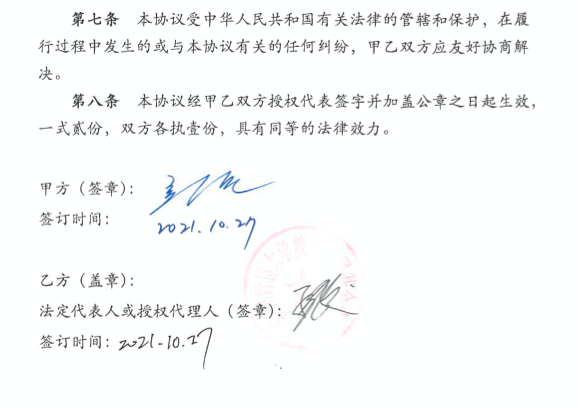 第七条 本协议受中华人民共和国有关法律的管辖和保护，在履
行过程中发生的或与本协议有关的任何纠纷，甲乙双方应友好协商解
决。
第八条 本协议经甲乙双方授权代表签字并加盖公章之日起生效，
一式贰份，双方各执壹份，具有同等的法律效力。
甲方（签章）：
签订时间： 2021.10.27
乙方（盖章）：
法定代表人或授权代理人（签章）：
签订时间：2021-10.27